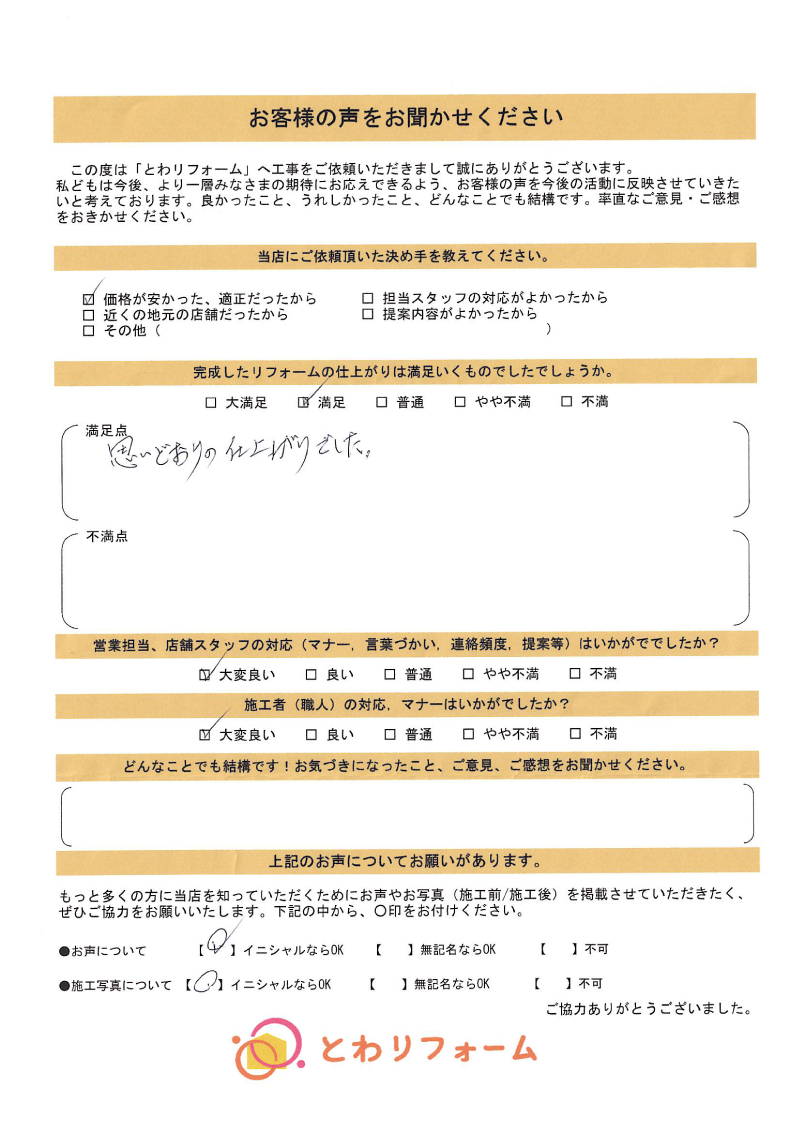 お客様の声をお聞かせください
この度は「とわリフォーム」へ工事をご依頼いただきまして誠にありがとうございます。
私どもは今後、より一層みなさまの期待にお応えできるよう、お客様の声を今後の活動に反映させていきた
いと考えております。良かったこと、うれしかったこと、どんなことでも結構です。率直なご意見・ご感想
をおきかせください。
当店にご依頼頂いた決め手を教えてください。
☑ 価格が安かった、適正だったから □ 担当スタッフの対応がよかったから
□ 近くの地元の店舗だったから □ 提案内容がよかったから
□ その他（ ）
完成したリフォームの仕上がりは満足いくものでしたでしょうか。
□ 大満足 ☑ 満足 □ 普通 □ やや不満 □ 不満
満足点
思いどおりの仕上がりでした。
不満点
営業担当、店舗スタッフの対応（マナー, 言葉づかい, 連絡頻度, 提案等）はいかがででしたか？
☑ 大変良い □ 良い □ 普通 □ やや不満 □ 不満
施工者（職人）の対応, マナーはいかがでしたか？
☑ 大変良い □ 良い □ 普通 □ やや不満 □ 不満
どんなことでも結構です！お気づきになったこと、ご意見、ご感想をお聞かせください。
上記のお声についてお願いがあります。
もっと多くの方に当店を知っていただくためにお声やお写真（施工前/施工後）を掲載させていただきたく、
ぜひご協力をお願いいたします。下記の中から、〇印をお付けください。
●お声について 【〇】イニシャルならOK 【 】無記名ならOK 【 】不可
●施工写真について 【〇】イニシャルならOK 【 】無記名ならOK 【 】不可
ご協力ありがとうございました。
とわリフォーム